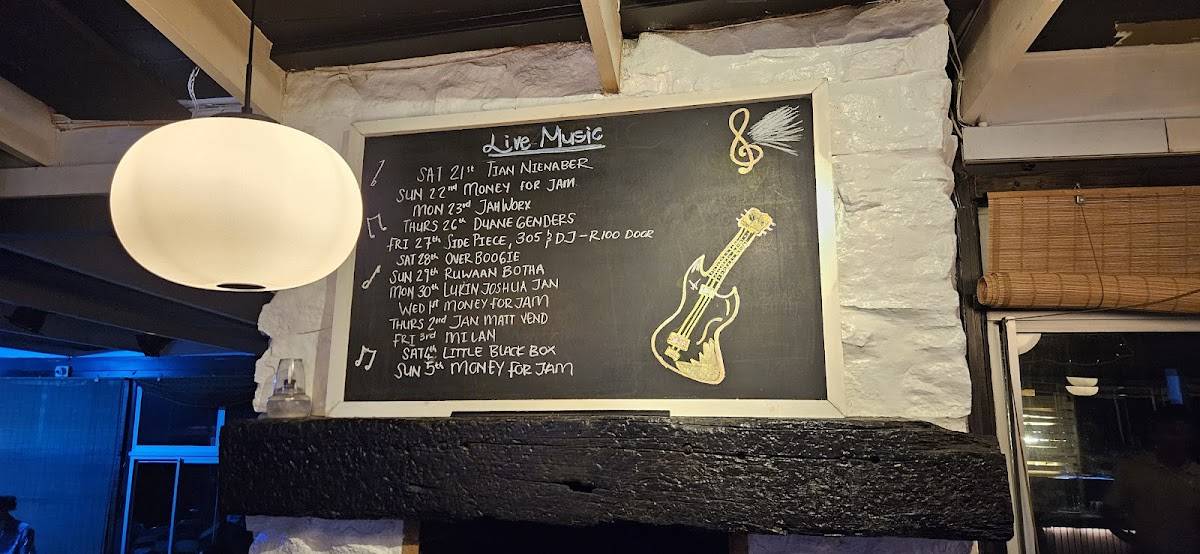 Live Music
SAT 21st TIAN NIENABER
SUN 22nd MONEY FOR JAM
MON 23rd JAHWORX
THURS 26th DUANE GENDERS
FRI 27th SIDE PIECE, 305 & DJ - R100 DOOR
SAT 28th OVERBOOGIE
SUN 29th RUWAAN BOTHA
MON 30th LUKIN JOSHUA JAN
WED 1st MONEY FOR JAM
THURS 2nd JAN MATT VEND
FRI 3rd MILAN
SAT 4th LITTLE BLACK BOX
SUN 5th MONEY FOR JAM